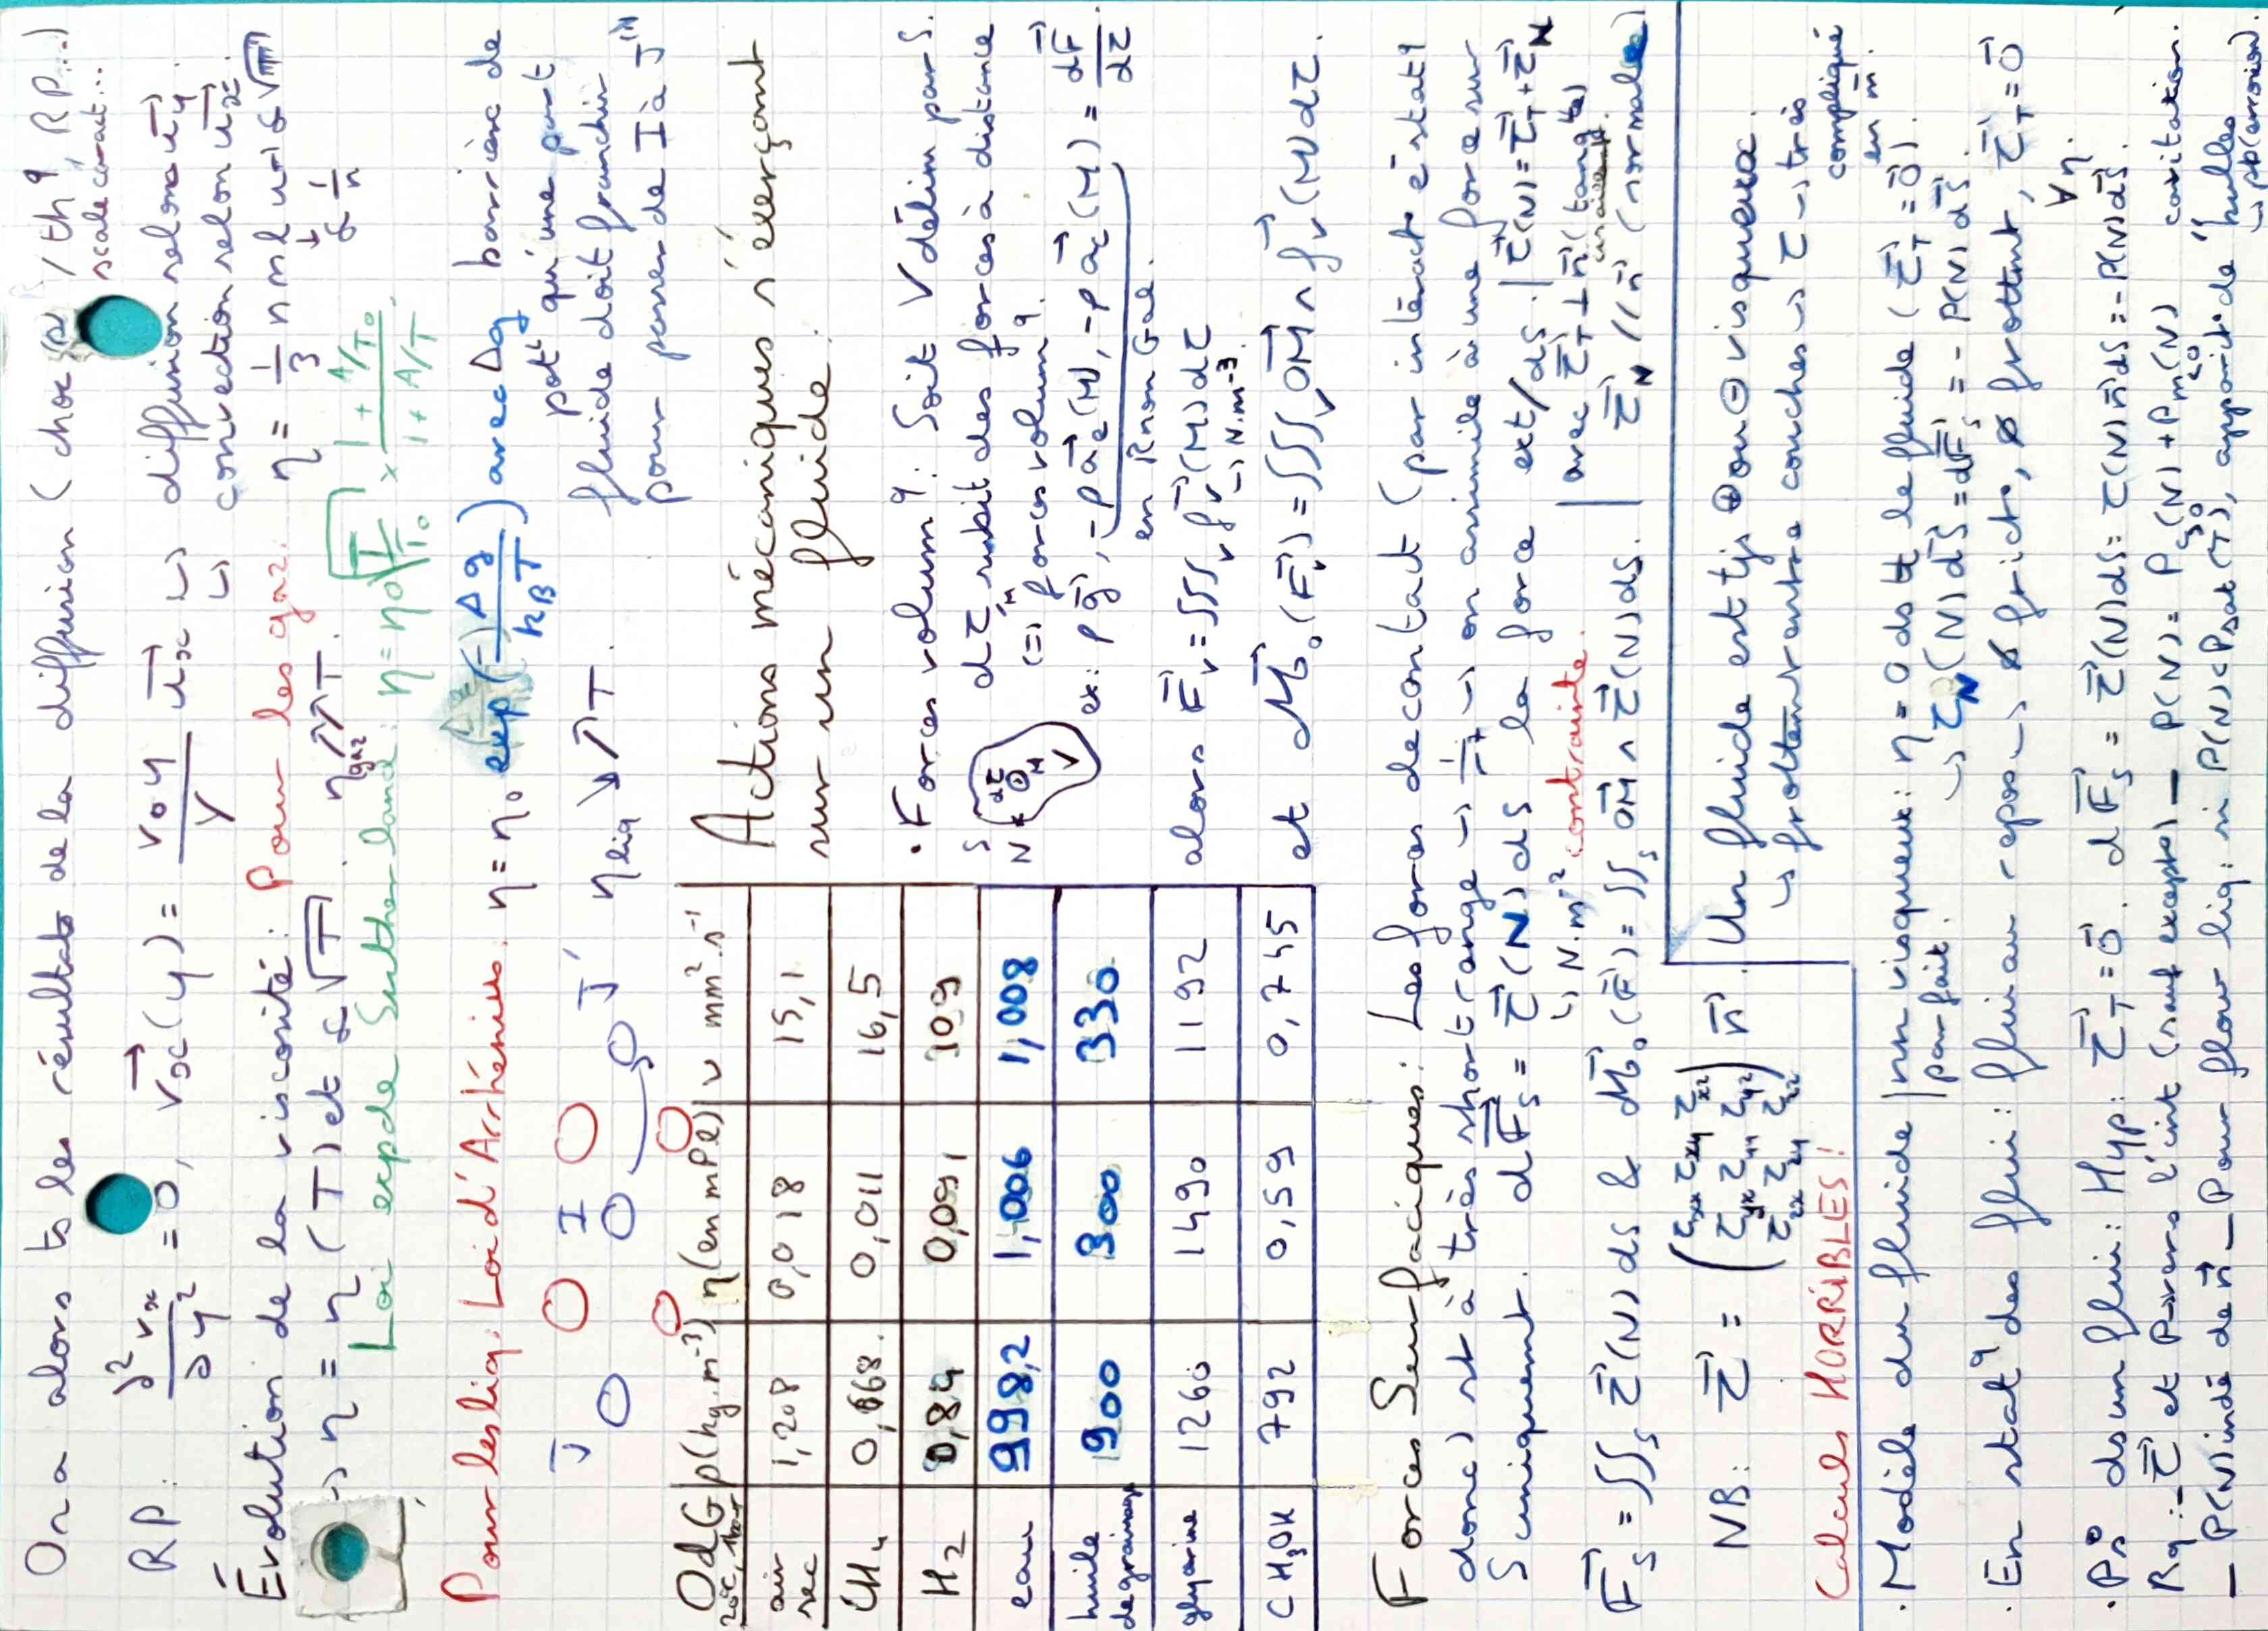 On a alors ts les résultats de la diffusion (choc p/th, RP...)
scale carat...
RP: ∂²vx/∂y² = 0, vx(y) = v0y/Y ux
↳ diffusion selon uy
↳ convection selon ux.
Évolution de la viscosité: Pour les gaz: η = 1/3 n m l u → α √m
α 1/n
→ η = η(T) et α √T. ηgaz ↗↗T.
Loi exp de Sutherland: η = η0 √(T/T0) × (1 + A/T0)/(1 + A/T).
Pour les liq: Loi d'Arrhénius: η = η0 exp(-Δg/kBT) avec Δg barrière de
pot' qu'une part
fluide doit franchir
pour passer de I à J'
J I J' ηliq ↘ ↗T.
OdG 20°C, 1bar ρ(kg.m⁻³) η(en mPl) ν mm².s⁻¹
air sec 1,208 0,018 15,1
CH4 0,668. 0,011 16,5
H2 0,84 0,091 109
eau 998,2 1,006 1,008
huile de graissage 900 300 330
glycérine 1260 1490 1192
CH3OH 792 0,59 0,745
Actions mécaniques s'éxerçant
sur un fluide.
• Forces volumq: Soit V délim par S.
dτ subit des forces à distance
(=) forces volumq.
S N dτ M V
ex: ρg, -ρae(M), -ρac(M) = dF/dτ
en R non Gal.
alors Fv = ∫∫∫v fv(M)dτ
↳ N.m⁻³.
et Mo(Fv) = ∫∫∫v OM ∧ fv(M)dτ.
Forces Surfaciques: Les forces de contact (par intéract° éstatq
donc) st à très short range → 1/r⁷ → on assimile à une force sur
S uniquement. dFs = τ(N)dS la force ext/dS. τ(N) = τT + τN
↳ N.m⁻² contrainte.
avec τT ⊥ n (tang)
τN // n (normale)
Fs = ∫∫s τ(N)dS & Mo(F) = ∫∫s OM ∧ τ(N)dS.
NB: τ = (τxx τxy τxz τyx τyy τyz τzx τzy τzz) n.
Calculs HORRIBLES!
Un fluide est tjs ⊕ ou ⊖ visqueux.
↳ frottemt entre couches → τ → très
compliqué
• Modèle du fluide non visqueux: η = 0 ds tt le fluide (τT = 0). en m.
parfait.
↳ τN(N)dS = dFs = -P(N)dS.
• En statq des flui: flui au repos → ∅ frict°, ∅ frottmt, τT = 0
∀η.
• Ps° ds un flui: Hyp: τT = 0. dFs = τ(N)dS = τ(N)ndS = -P(N)dS.
Rq: -τ et P→vers l'int (sauf except) - P(N) = P(N) + Pm(N) cavitation.
- P(N) indé de n - Pour flow liq: si P(N)<Psat(T), apparit° de "bulles
↳ pb (érosion).